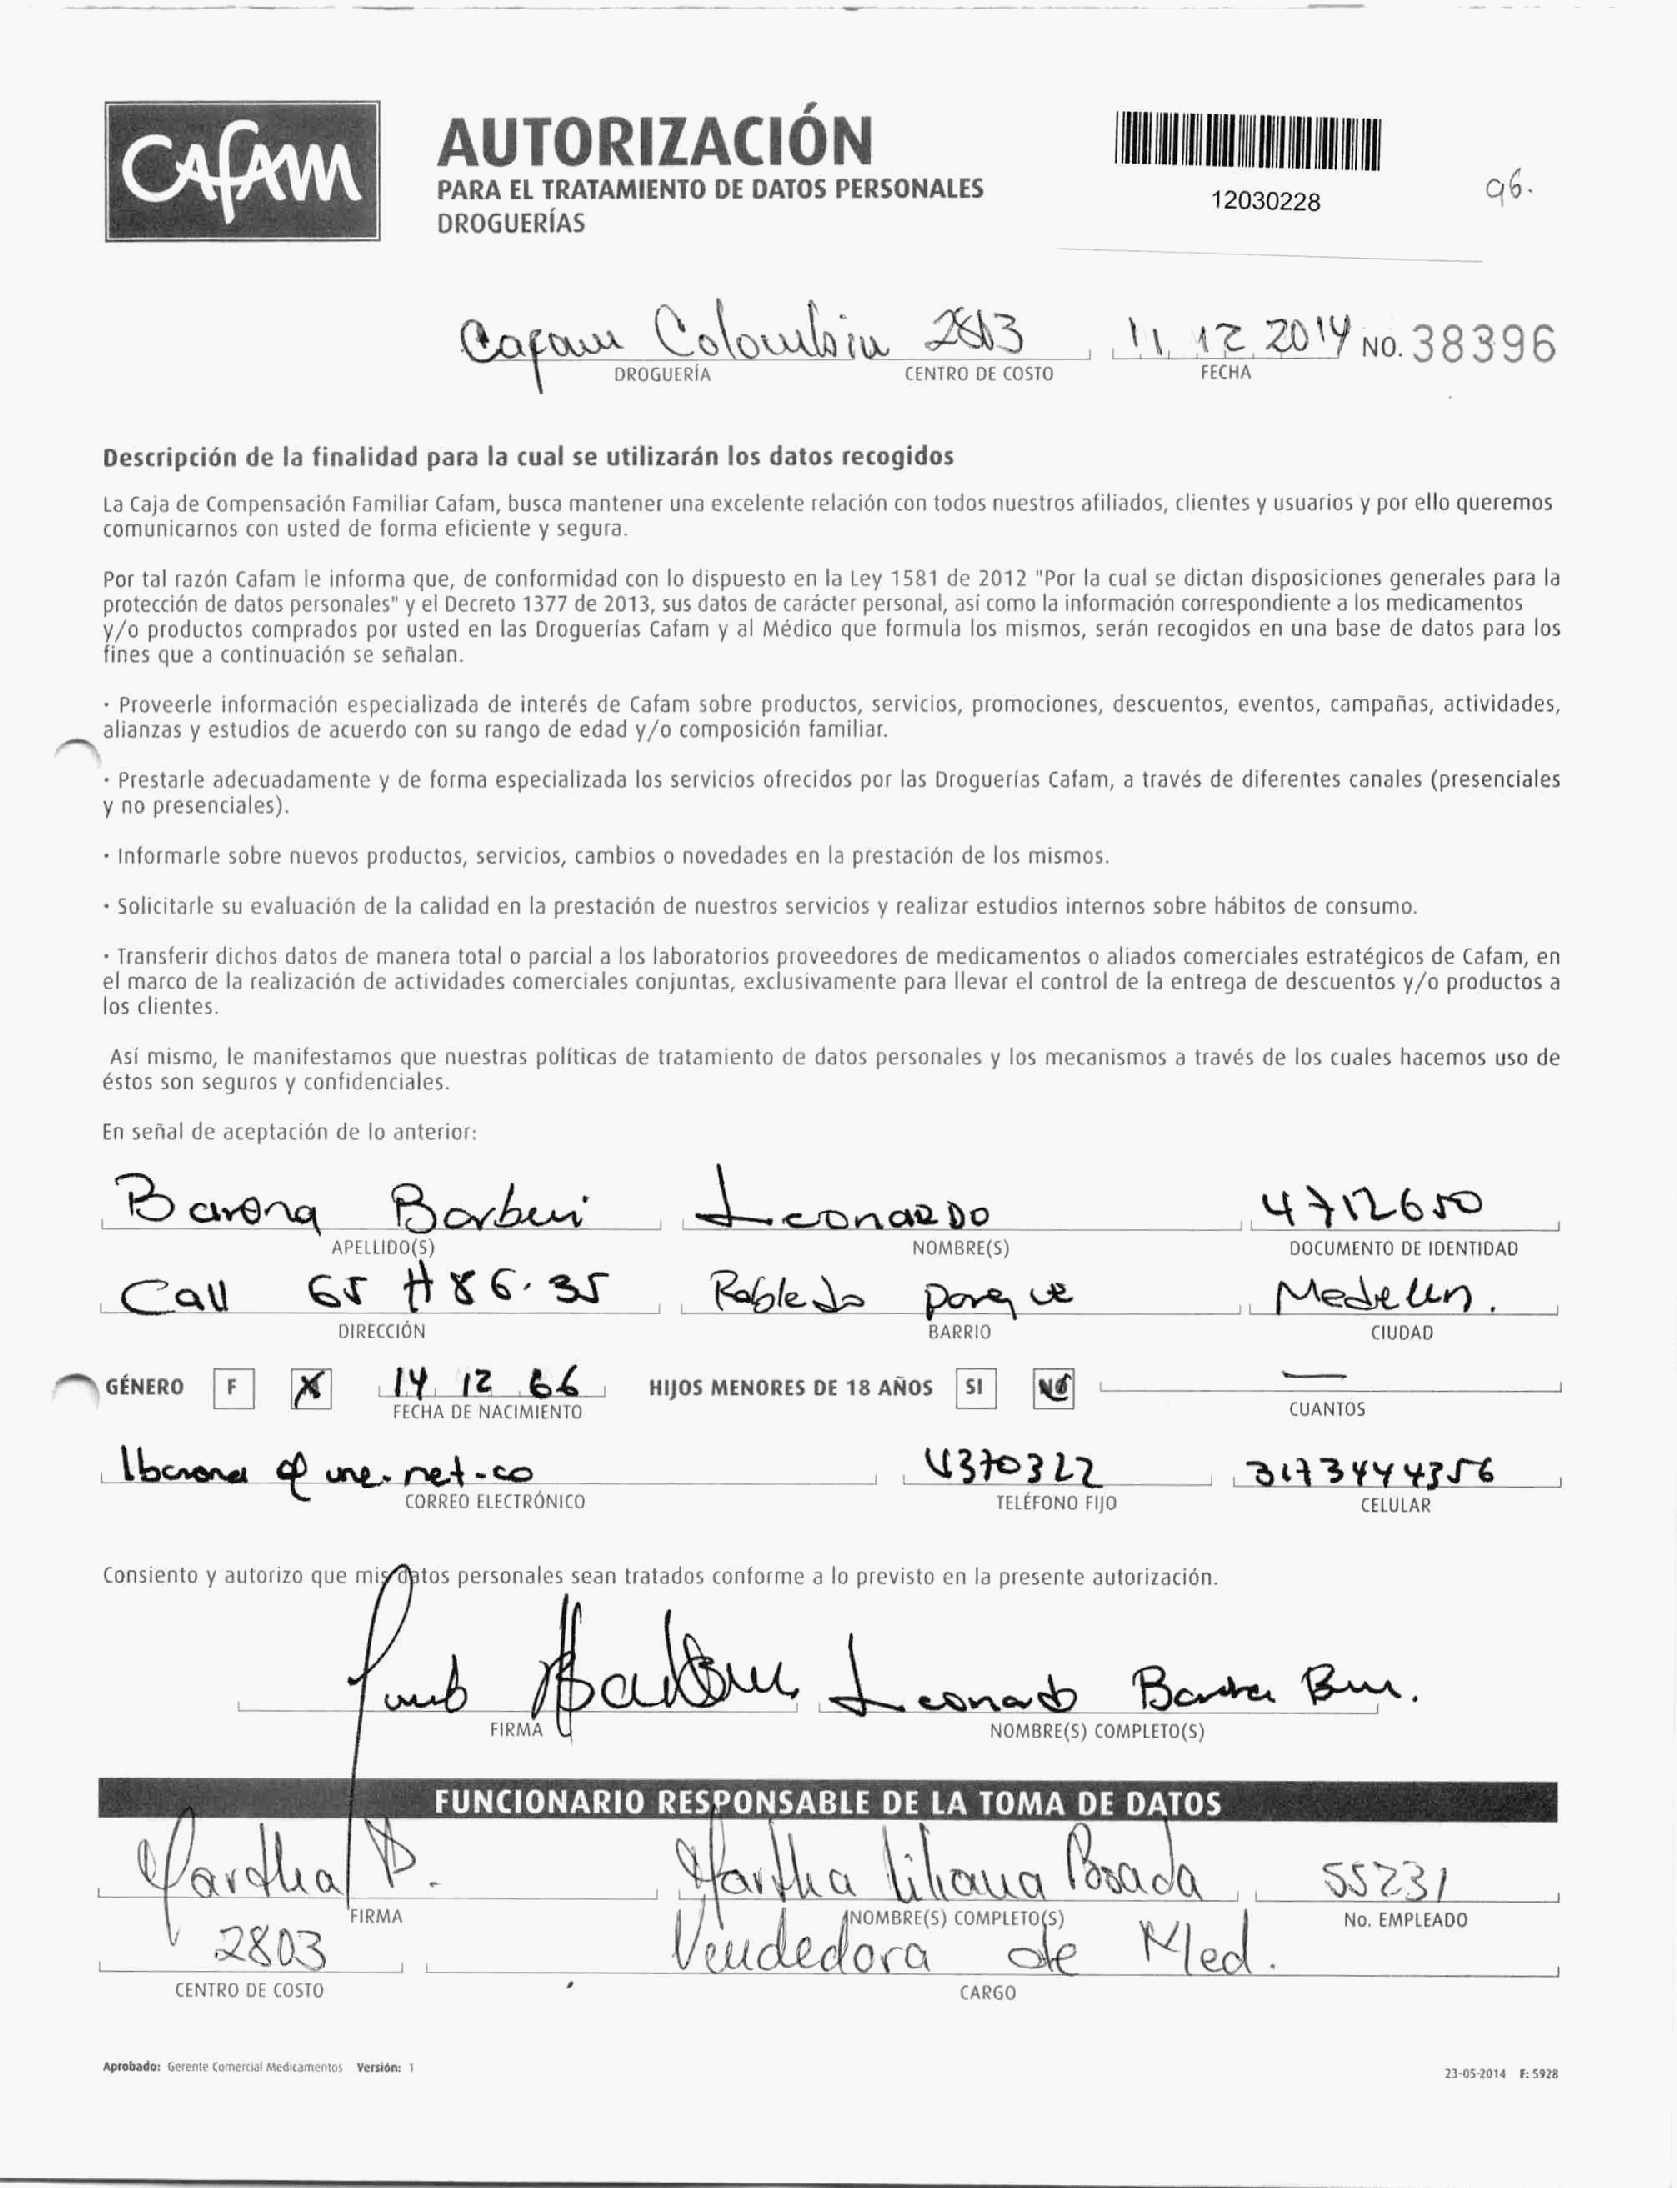 CAFAM
AUTORIZACIÓN
PARA EL TRATAMIENTO DE DATOS PERSONALES
DROGUERÍAS
12030228
96.
Cafam Colombia 2803 11 12 2014 NO. 38396
DROGUERÍA CENTRO DE COSTO FECHA
Descripción de la finalidad para la cual se utilizarán los datos recogidos
La Caja de Compensación Familiar Cafam, busca mantener una excelente relación con todos nuestros afiliados, clientes y usuarios y por ello queremos
comunicarnos con usted de forma eficiente y segura.
Por tal razón Cafam le informa que, de conformidad con lo dispuesto en la Ley 1581 de 2012 "Por la cual se dictan disposiciones generales para la
protección de datos personales" y el Decreto 1377 de 2013, sus datos de carácter personal, así como la información correspondiente a los medicamentos
y/o productos comprados por usted en las Droguerías Cafam y al Médico que formula los mismos, serán recogidos en una base de datos para los
fines que a continuación se señalan.
· Proveerle información especializada de interés de Cafam sobre productos, servicios, promociones, descuentos, eventos, campañas, actividades,
alianzas y estudios de acuerdo con su rango de edad y/o composición familiar.
· Prestarle adecuadamente y de forma especializada los servicios ofrecidos por las Droguerías Cafam, a través de diferentes canales (presenciales
y no presenciales).
· Informarle sobre nuevos productos, servicios, cambios o novedades en la prestación de los mismos.
· Solicitarle su evaluación de la calidad en la prestación de nuestros servicios y realizar estudios internos sobre hábitos de consumo.
· Transferir dichos datos de manera total o parcial a los laboratorios proveedores de medicamentos o aliados comerciales estratégicos de Cafam, en
el marco de la realización de actividades comerciales conjuntas, exclusivamente para llevar el control de la entrega de descuentos y/o productos a
los clientes.
Así mismo, le manifestamos que nuestras políticas de tratamiento de datos personales y los mecanismos a través de los cuales hacemos uso de
éstos son seguros y confidenciales.
En señal de aceptación de lo anterior:
Barona Barberi Leonardo 4712650
APELLIDO(S) NOMBRE(S) DOCUMENTO DE IDENTIDAD
Call 65 # 86.35 Robledo parque Medellin.
DIRECCIÓN BARRIO CIUDAD
GÉNERO F X 14 12 66 HIJOS MENORES DE 18 AÑOS SI NO —
FECHA DE NACIMIENTO CUANTOS
lbarona @ une.net.co 4370322 3173444356
CORREO ELECTRÓNICO TELÉFONO FIJO CELULAR
Consiento y autorizo que mis datos personales sean tratados conforme a lo previsto en la presente autorización.
Leonardo Barona
FIRMA NOMBRE(S) COMPLETO(S)
FUNCIONARIO RESPONSABLE DE LA TOMA DE DATOS
Martha P. Martha Liliana Posada 55231
FIRMA NOMBRE(S) COMPLETO(S) No. EMPLEADO
2803 Vendedora de Med.
CENTRO DE COSTO CARGO
Aprobado: Gerente Comercial Medicamentos Versión: 1
23-05-2014 F: 5928